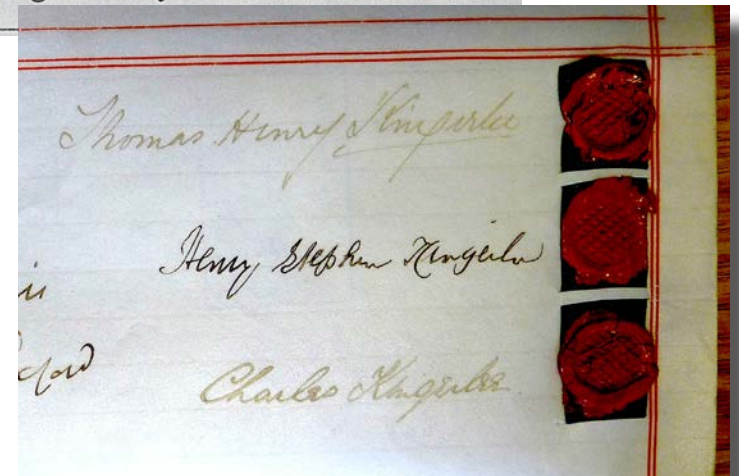 Thomas Henry Kingerlee
Henry Stephen Kingerlee
Charles Kingerlee